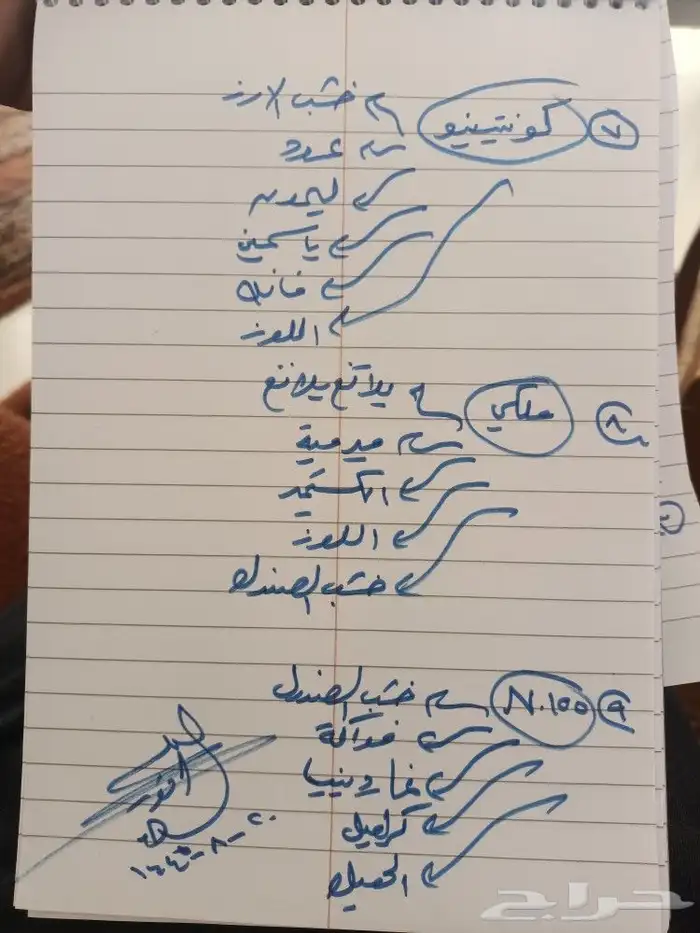 ٧ كونتيسيو
خشب الارز
عود
ليمون
ياسمين
فانيلا
اللوز
٨ ملكي
يلانغ يلانغ
ميرمية
الكشمير
اللوز
خشب الصندل
٩ N.100
خشب الصندل
فواكة
غاردينيا
كراميل
الجميل
انور
١٤٤٣-٨-٢٠
حراج